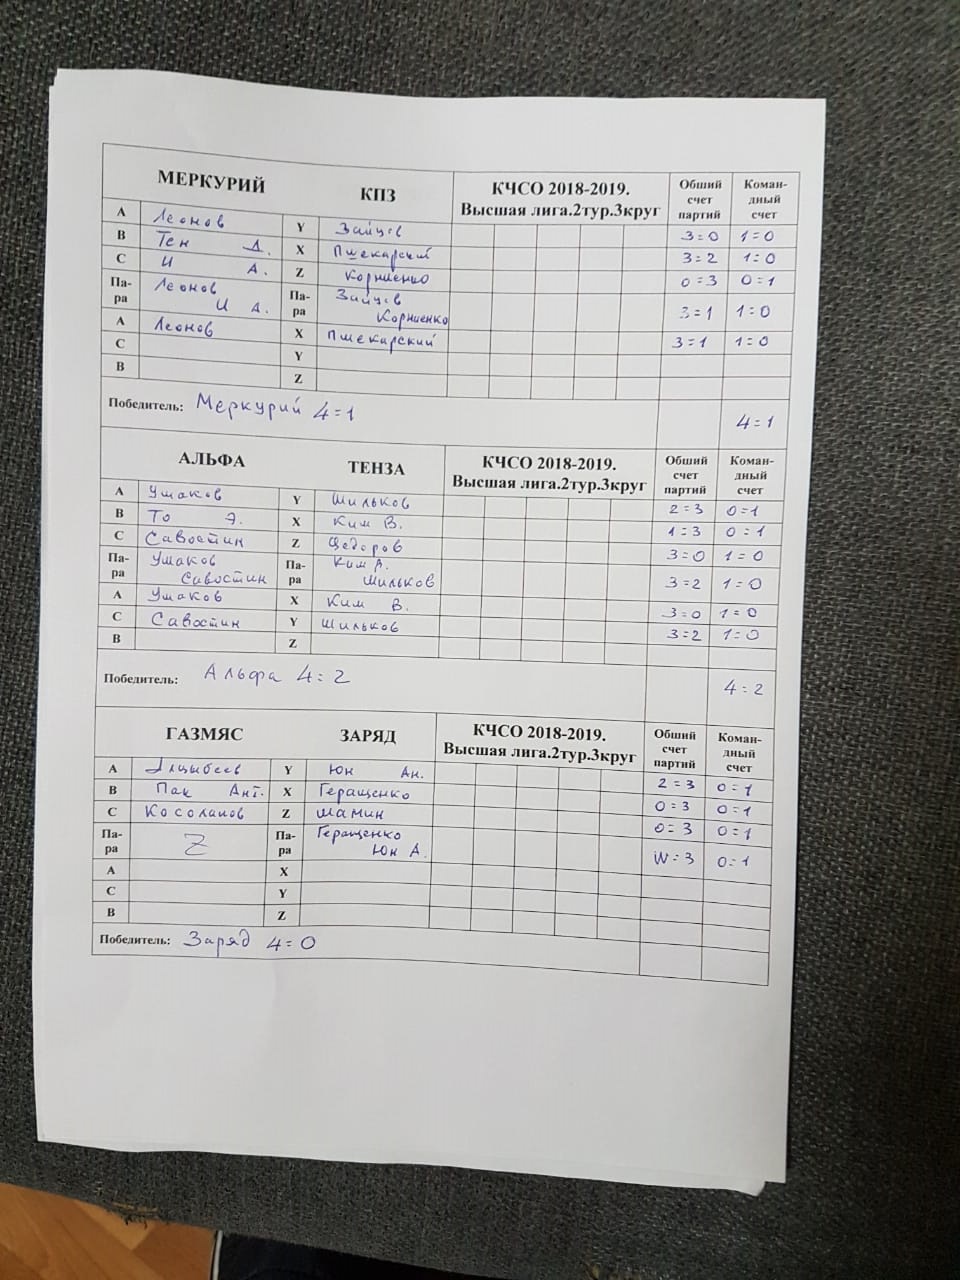 МЕРКУРИЙ КПЗ КЧСО 2018-2019. Высшая лига.2тур.3круг Обший счет партий Коман-дный счет
А Леонов Y Зайцев 3=0 1=0
В Тен Д. X Пшекарский 3=2 1=0
С И А. Z Корниенко 0=3 0=1
Па-ра Леонов И А. Па-ра Зайцев Корниенко 3=1 1=0
А Леонов X Пшекарский 3=1 1=0
С Y
В Z
Победитель: Меркурий 4=1 4=1
АЛЬФА ТЕНЗА КЧСО 2018-2019. Высшая лига.2тур.3круг Обший счет партий Коман-дный счет
А Ушаков Y Шильков 2=3 0=1
В То Э. X Ким В. 1=3 0=1
С Савостин Z Федоров 3=0 1=0
Па-ра Ушаков Савостин Па-ра Ким А. Шильков 3=2 1=0
А Ушаков X Ким В. 3=0 1=0
С Савостин Y Шильков 3=2 1=0
В Z
Победитель: Альфа 4=2 4=2
ГАЗМЯС ЗАРЯД КЧСО 2018-2019. Высшая лига.2тур.3круг Обший счет партий Коман-дный счет
А Алцыбеев Y Юн Ан. 2=3 0=1
В Пак Ант. X Геращенко 0=3 0=1
С Косолапов Z Шамин 0=3 0=1
Па-ра Z Па-ра Геращенко Юн А. W=3 0=1
А X
С Y
В Z
Победитель: Заряд 4=0